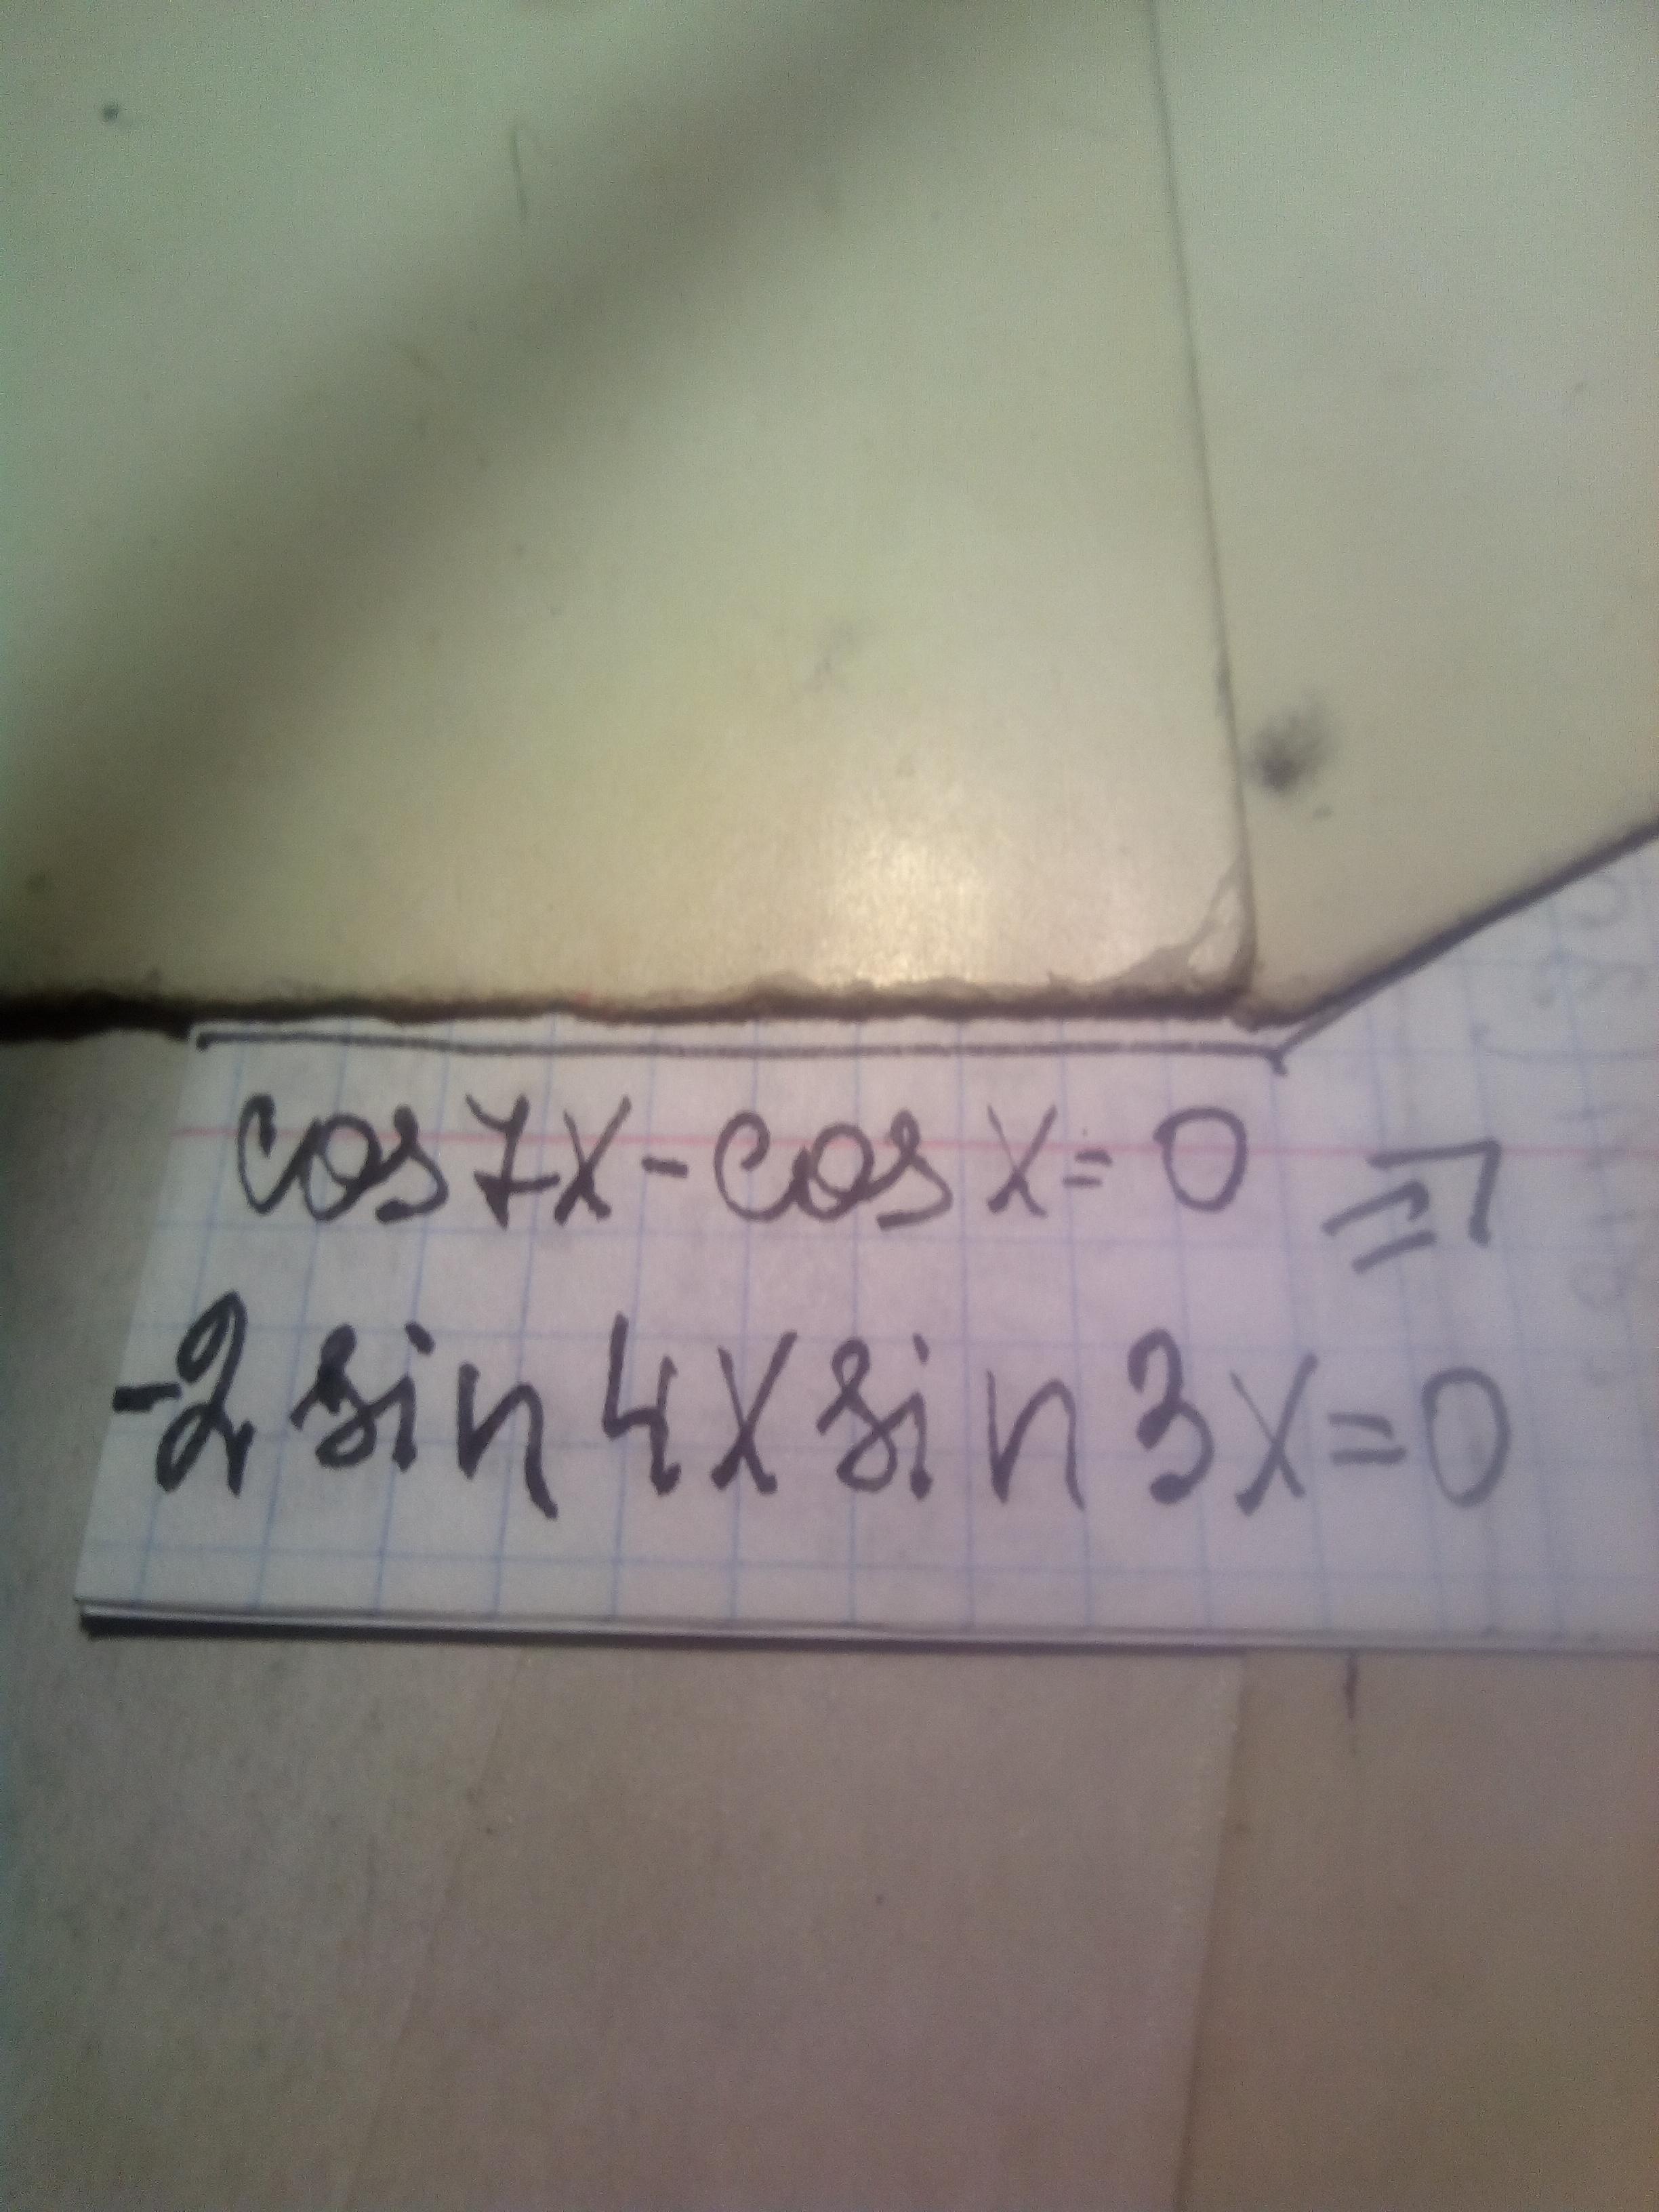 cos7x-cosx=0 =>
-2sin4xsin3x=0